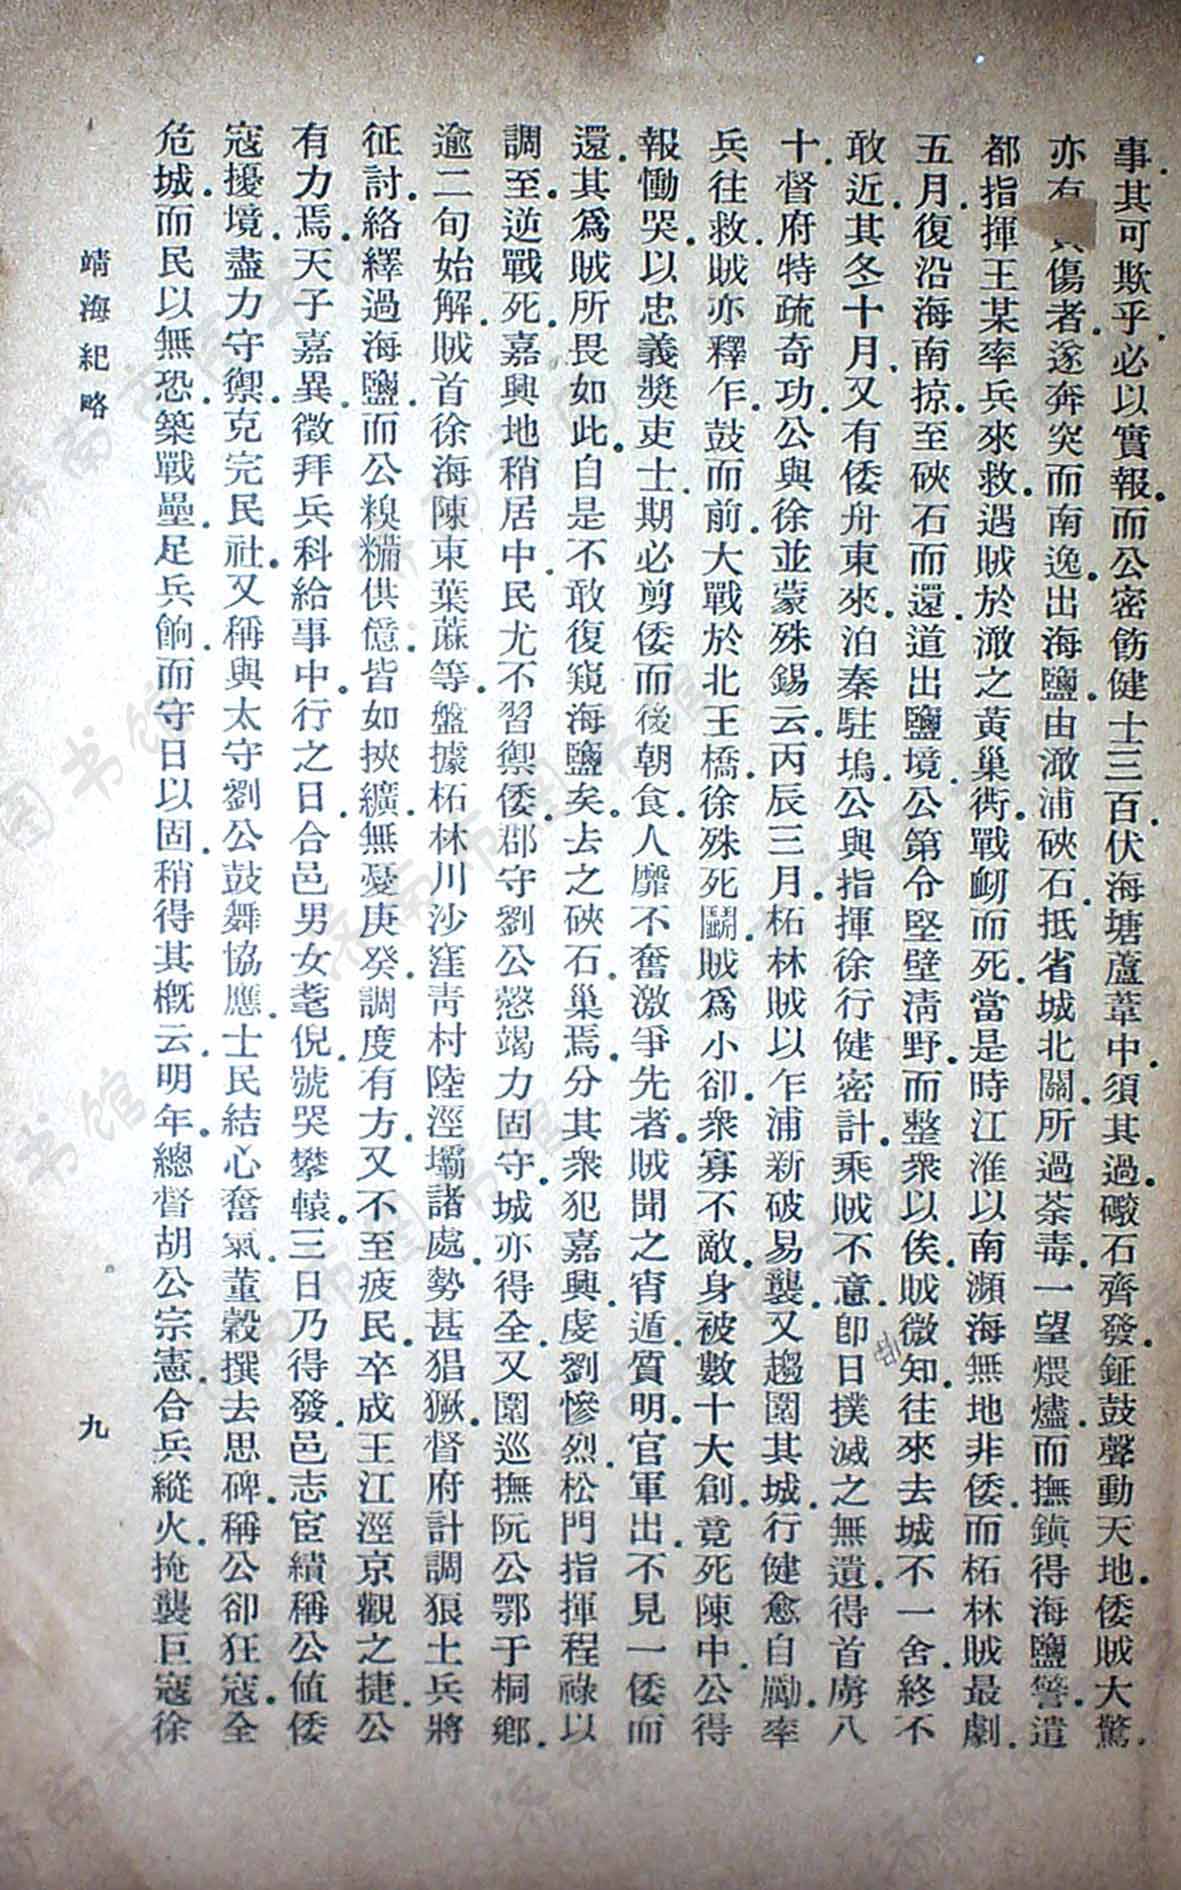 事其可欺乎必以實報而公密飭健士三百伏海塘蘆葦中須其過礮石齊發鉦鼓聲動天地倭賊大驚
亦有傷者遂奔突而南逸出海鹽由澉浦硤石抵省城北關所過荼毒一望煨燼而撫鎭得海鹽警遣
都指揮王某率兵來救遇賊於澉之黃巢衖戰衂而死當是時江淮以南瀕海無地非倭而柘林賊最劇
五月復沿海南掠至硤石而還道出鹽境公第令堅壁淸野而整衆以俟賊微知往來去城不一舍終不
敢近其冬十月又有倭舟東來泊秦駐塢公與指揮徐行健密計乘賊不意卽日撲滅之無遺得首虜八
十督府特疏奇功公與徐並蒙殊錫云丙辰三月柘林賊以乍浦新破易襲又趨圍其城行健愈自勵率
兵往救賊亦釋乍鼓而前大戰於北王橋徐殊死鬭賊爲小卻衆寡不敵身被數十大創竟死陳中公得
報慟哭以忠義奬吏士期必剪倭而後朝食人靡不奮激爭先者賊聞之宵遁質明官軍出不見一倭而
還其爲賊所畏如此自是不敢復窺海鹽矣去之硤石巢焉分其衆犯嘉興虔劉慘烈松門指揮程祿以
調至逆戰死嘉興地稍居中民尤不習禦倭郡守劉公慤竭力固守城亦得全又圍巡撫阮公鄂于桐鄕
逾二旬始解賊首徐海陳東葉蔴等盤據柘林川沙窪靑村陸涇壩諸處勢甚猖獗督府計調狼土兵將
征討絡繹過海鹽而公糗糒供億皆如挾纊無憂庚癸調度有方又不至疲民卒成王江涇京觀之捷公
有力焉天子嘉異徵拜兵科給事中行之日合邑男女耄倪號哭攀轅三日乃得發邑志宦績稱公値倭
寇擾境盡力守禦克完民社又稱與太守劉公鼓舞協應士民結心奮氣董穀撰去思碑稱公卻狂寇全
危城而民以無恐築戰壘足兵餉而守日以固稍得其槪云明年總督胡公宗憲合兵縱火掩襲巨寇徐
靖海紀略
九